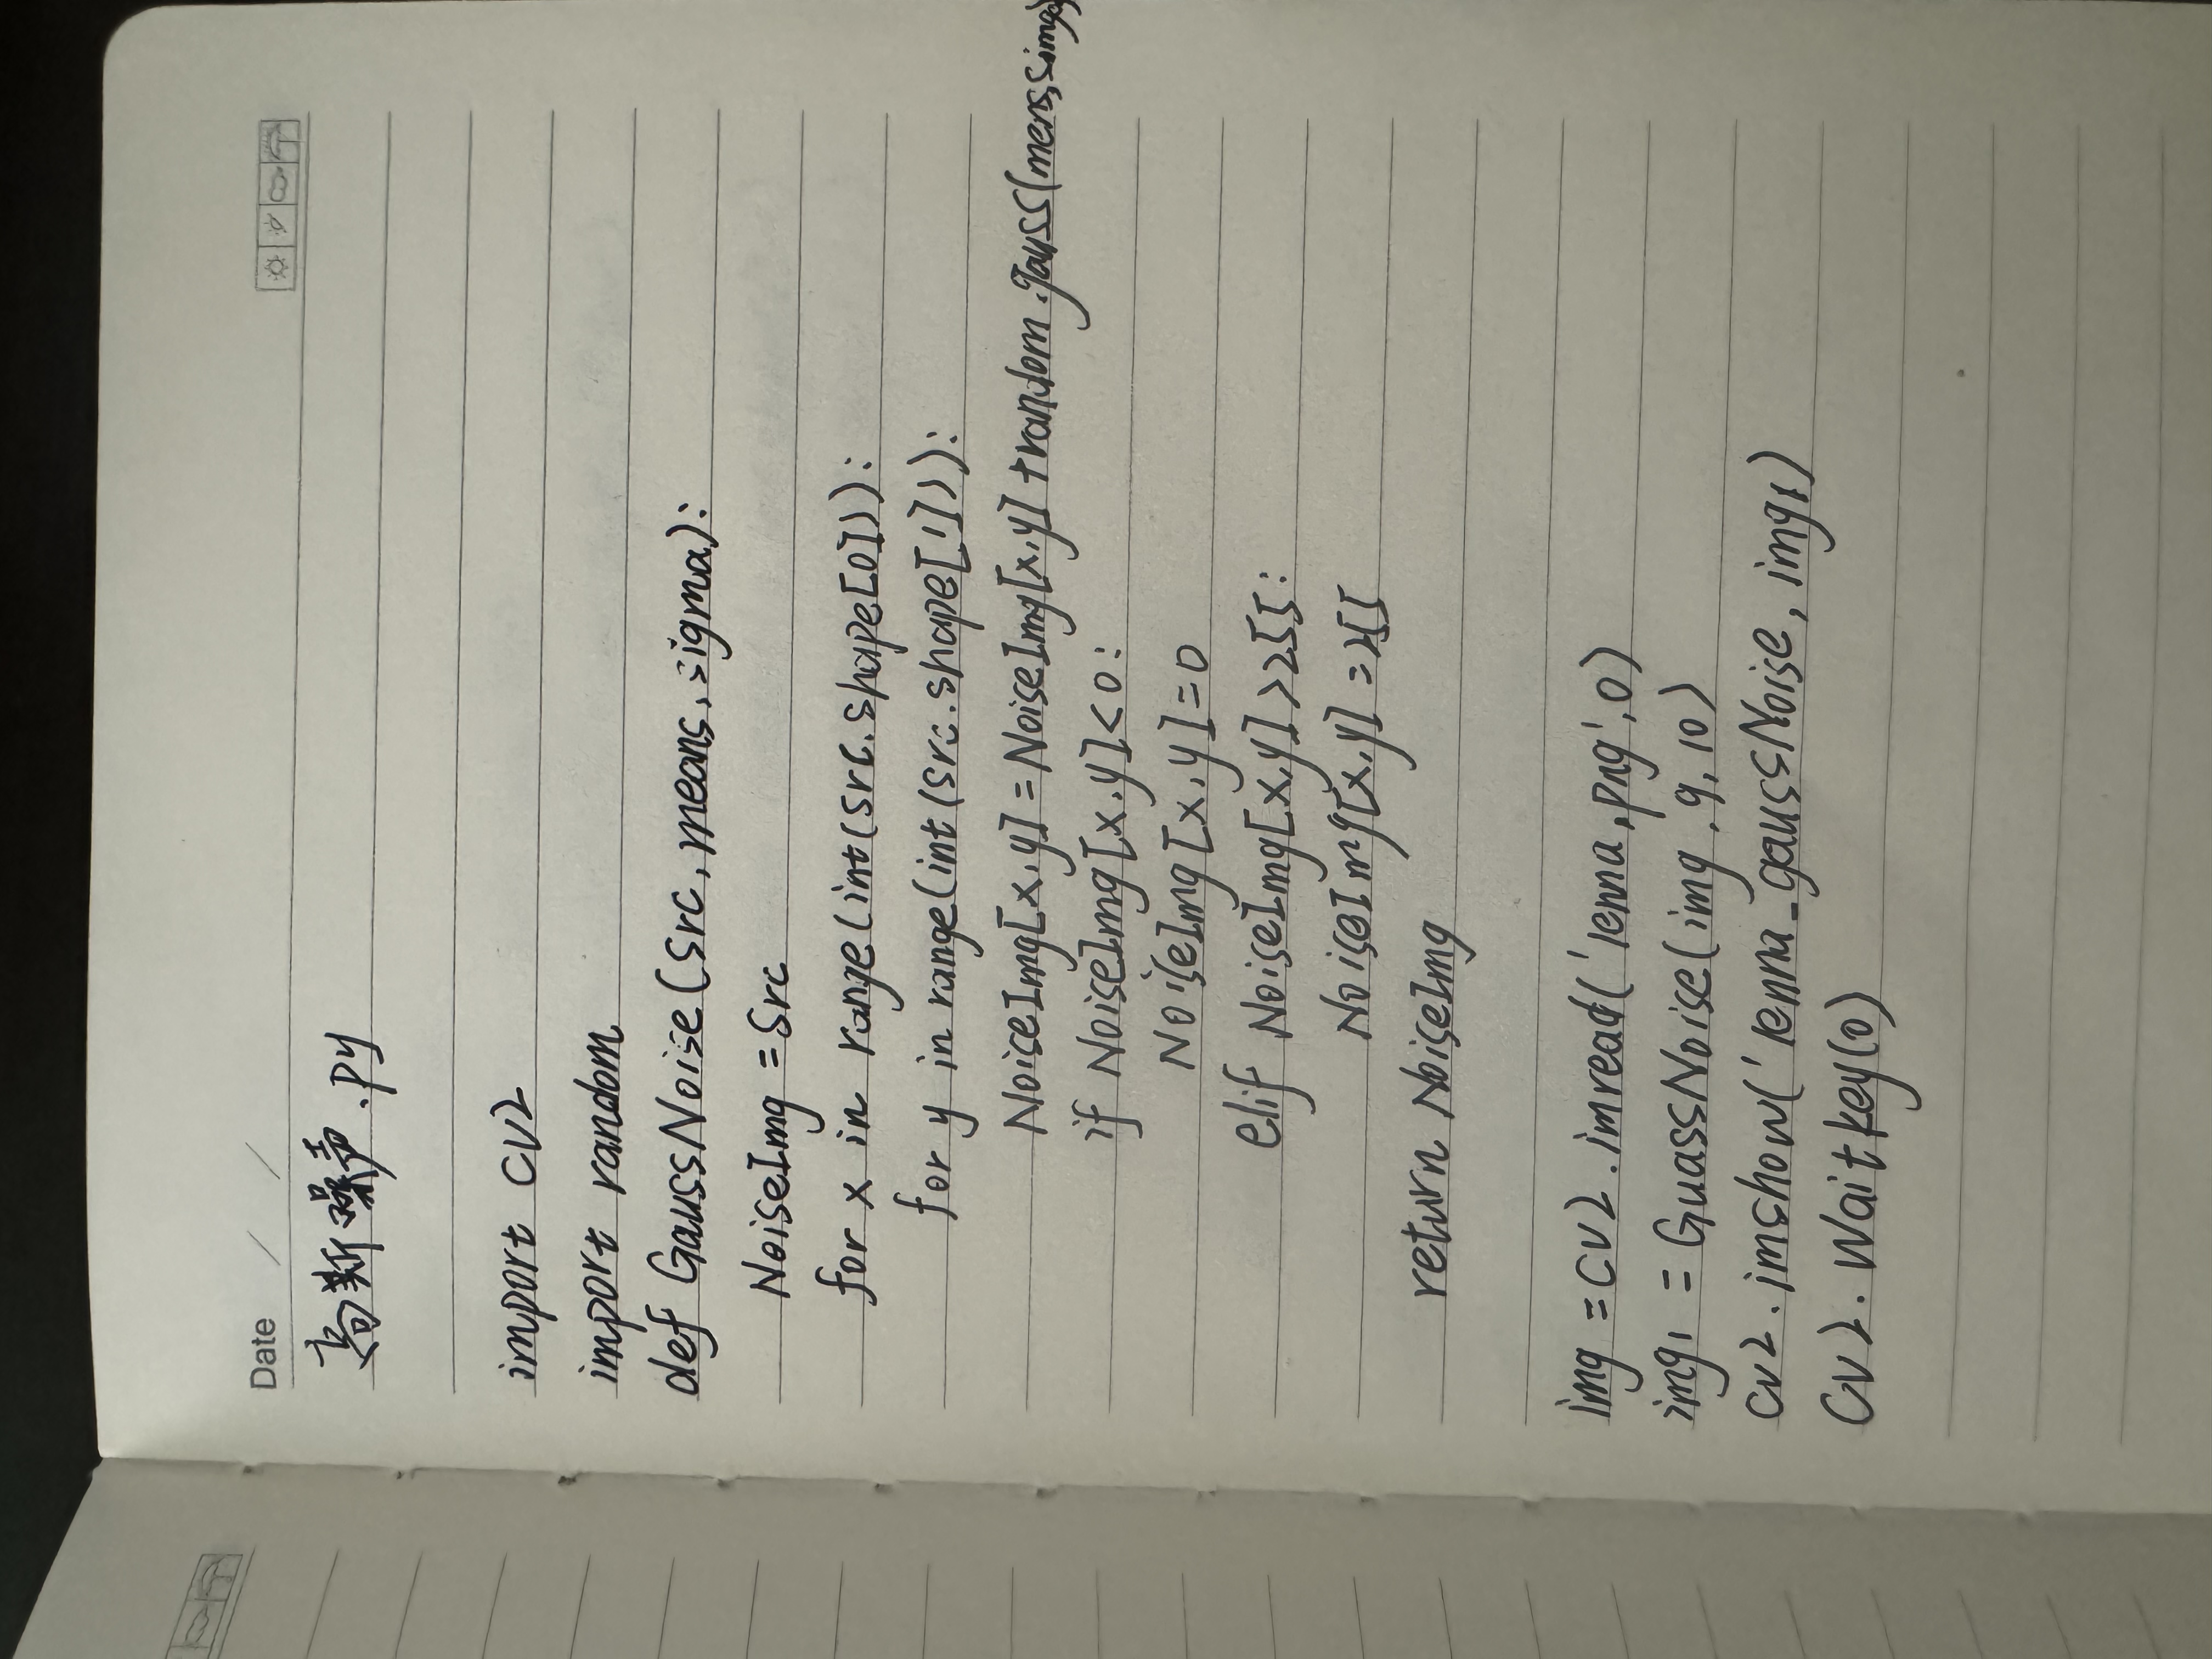 Date / /
高斯噪声.py
import cv2
import random
def GaussNoise(src,means,sigma):
NoiseImg = src
for x in range(int(src.shape[0])):
for y in range(int(src.shape[1])):
NoiseImg[x,y] = NoiseImg[x,y] + random.gauss(mens,simga)
if NoiseImg[x,y]<0:
NoiseImg[x,y]=0
elif NoiseImg[x,y]>255:
NoiseImg[x,y] =255
return NoiseImg
img = cv2.imread('lenna.png',0)
img1 = GuassNoise(img,9,10)
cv2.imshow('lenna_gaussNoise, img1)
cv2.Waitkey(0)